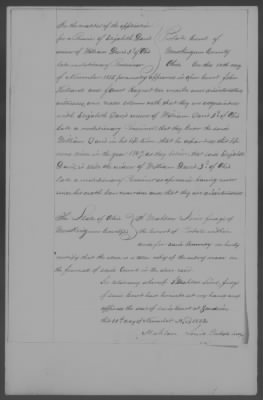 In the matter of the application
for a Pension of Elizabeth Davis
widow of William Davis 3d of Ohio
late revolutionary Pensioner
Probate Court of
Muskingum County
Ohio On this 10th day
of November 1852 personally appeared in open Court John
and James two credible and disinterested
witnesses, and made solemn oath that they are acquainted
with Elizabeth Davis widow of William Davis 3d of Ohio
late a revolutionary Pensioner that they knew the said
William Davis in his life time that he departed this life
some time in the year as they believe that said Elizabeth
Davis is still the widow of William Davis 3d of Ohio
late a revolutionary Pensioner as aforesaid having never
since his death been married and that they are disinterested
The State of Ohio
Muskingum County
I Mahlon judge of
the Court of Probate within
and for said County do hereby
certify that the above is a true copy of the entry made on
the Journal of said Court in the above case
In testimony whereof I Mahlon judge
of said Court have hereunto set my hand and
affixed the seal of said Court at Zanesville
this 10th day of November A.D. 1852
Mahlon Probate Judge